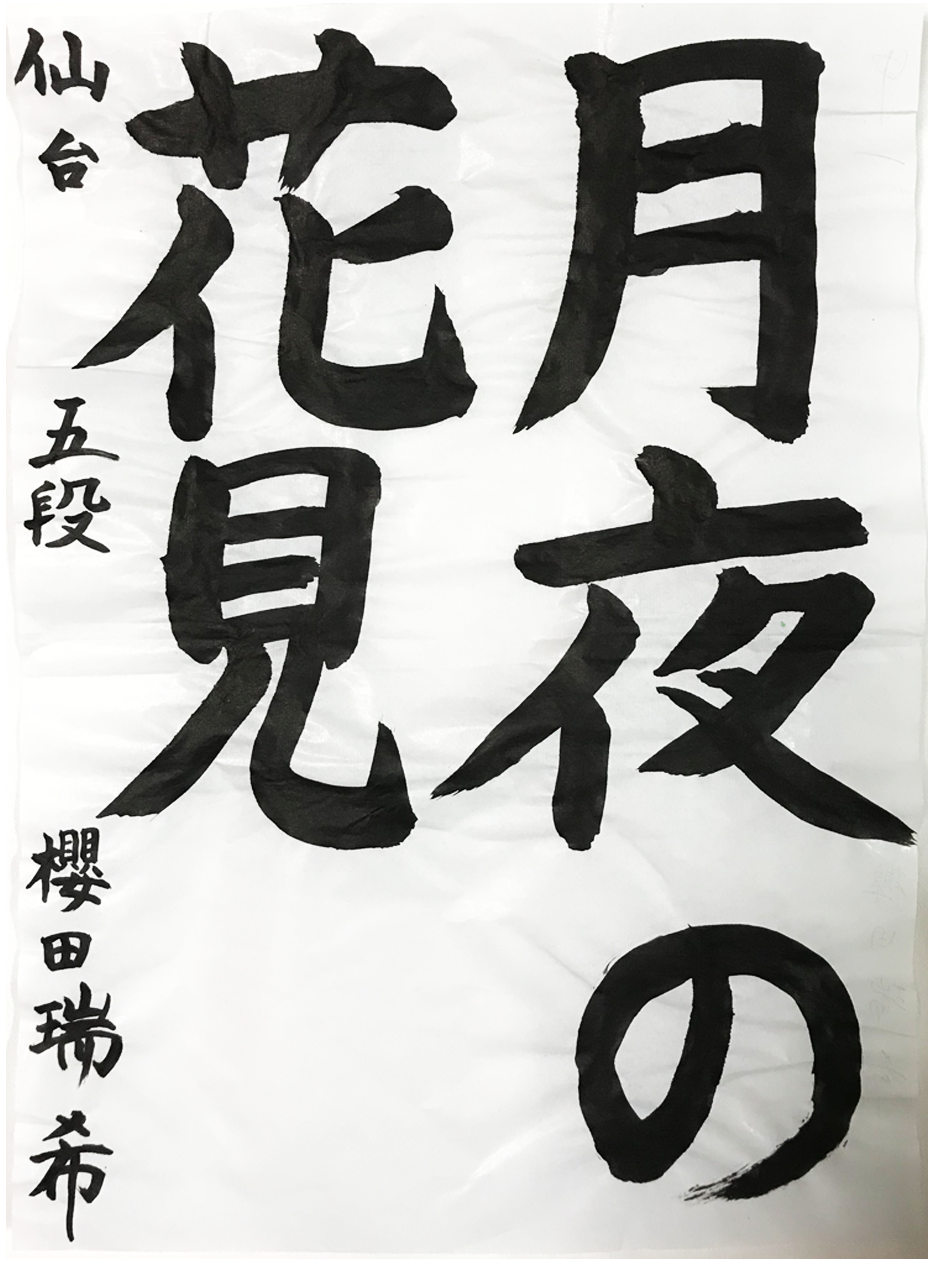 月夜の
花見
仙台 五段 櫻田瑞希